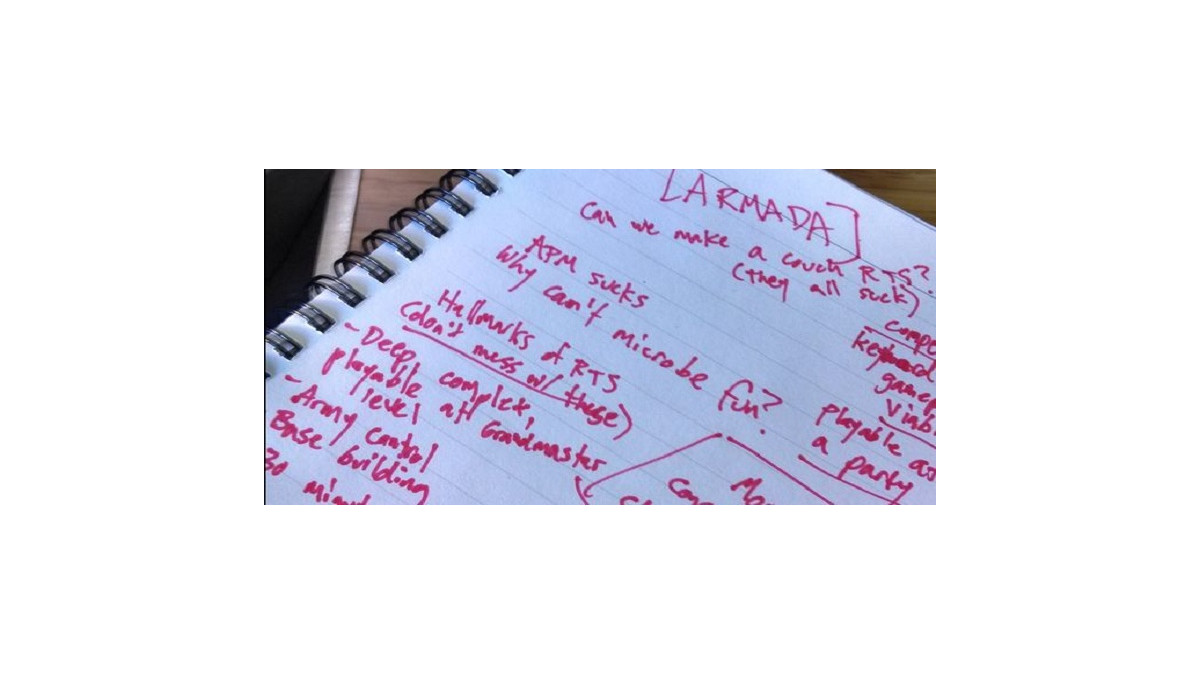 [ARMADA]
Can we make a couch RTS?
(they all suck)
APM sucks
Why can't microbe fun?
Hallmarks of RTS
(don't mess w/ these)
- Deep, complex,
playable at Grandmaster
level
- Army control
Base building
30
Keyboard
playable as
a party